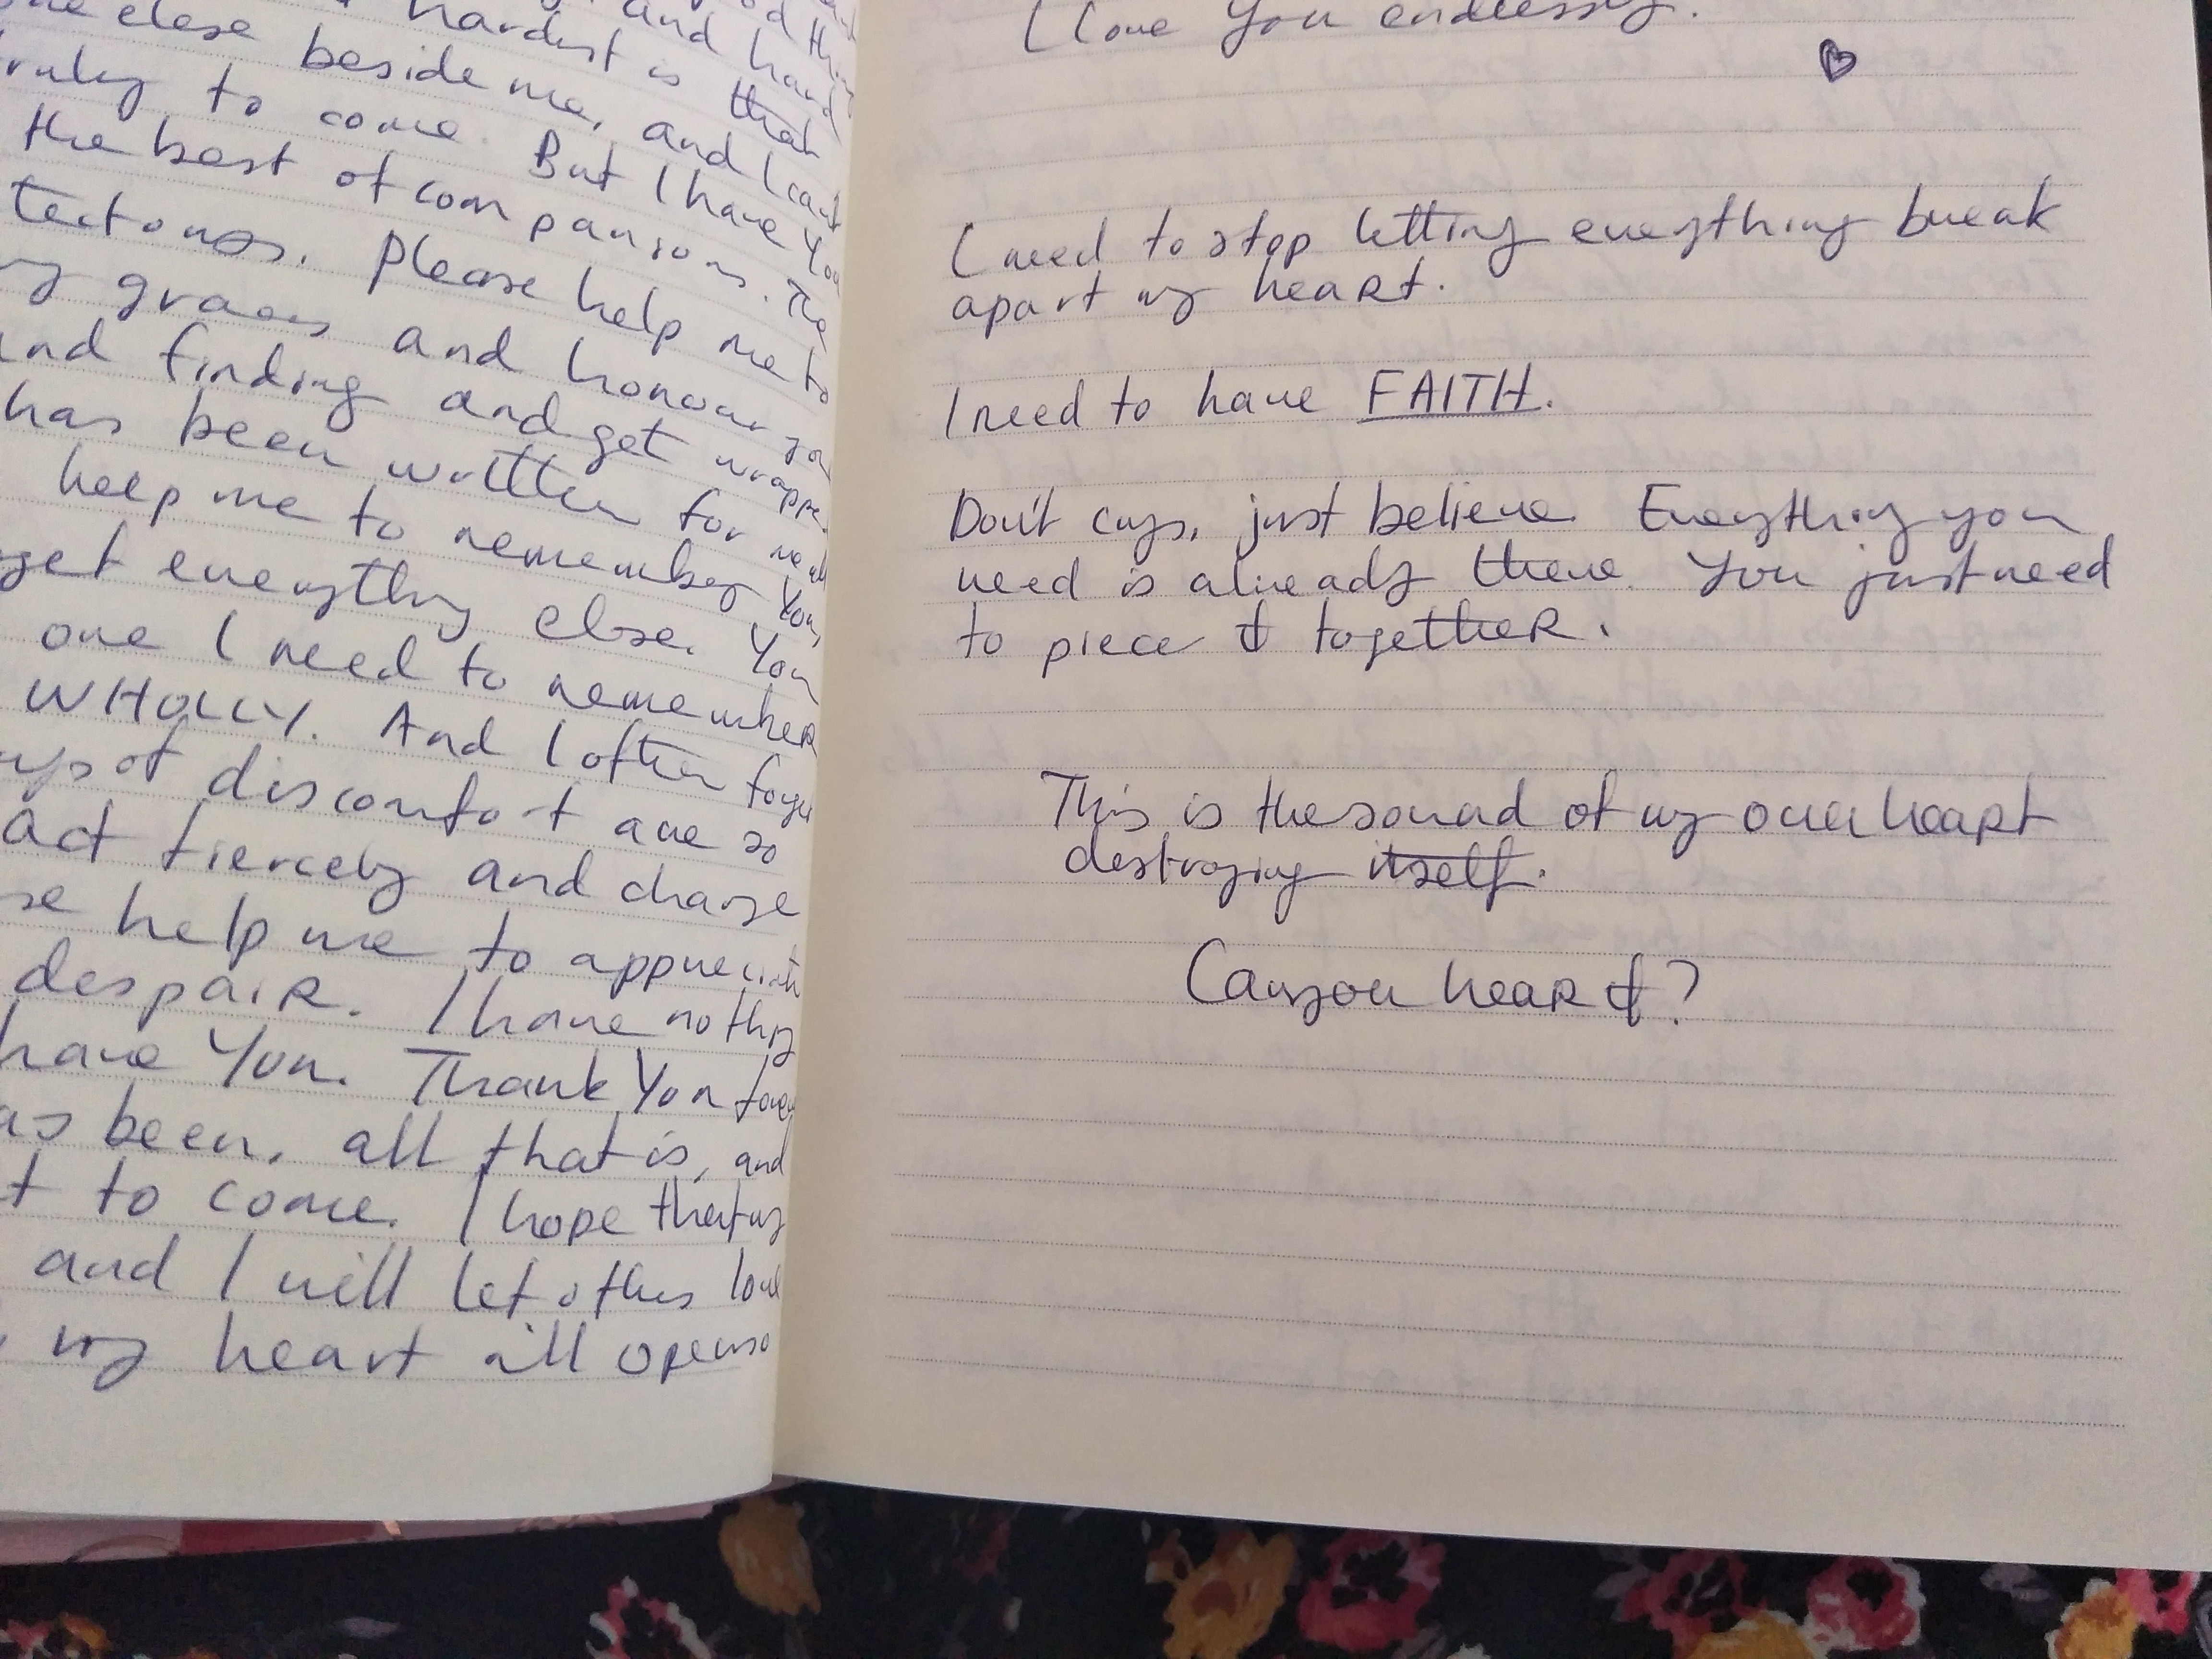 and hard
hardest is that
close beside me, and I can't
to come. But I have You
the best of companions. The
Please help me to
graces and honour you
finding and get wrapped
has been written for me
help me to remember You,
everything else. You
one I need to remember
WHOLLY. And I often forget
of discomfort are so
act fiercely and charge
help me to appreciate
despair. I have nothing
have You. Thank You for
as been, all that is, and
to come. I hope that my
and I will let others love
my heart all open so
I love You endlessly.
I need to stop letting everything break
apart my heart.
I need to have FAITH.
Don't cry, just believe. Everything you
need is already there. You just need
to piece it together.
This is the sound of my own heart
destroying itself.
Can you hear it?